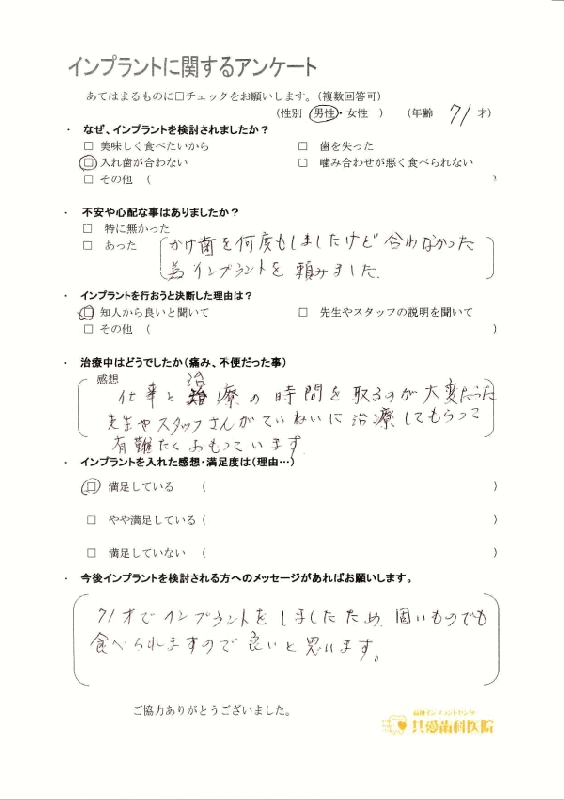 インプラントに関するアンケート
あてはまるものに□チェックをお願いします。（複数回答可）
（性別 男性・女性 ） （年齢 71 才）
・ なぜ、インプラントを検討されましたか？
□ 美味しく食べたいから □ 歯を失った
□ 入れ歯が合わない □ 噛み合わせが悪く食べられない
□ その他 （ ）
・ 不安や心配な事はありましたか？
□ 特に無かった
□ あった かけ歯を何度もしましたけど 合わなかった
為 インプラントを 頼みました。
・ インプラントを行おうと決断した理由は？
□ 知人から良いと聞いて □ 先生やスタッフの説明を聞いて
□ その他 （ ）
・ 治療中はどうでしたか（痛み、不便だった事）
感想
仕事と 治療の時間を取るのが大変だった
先生やスタッフさんがていねいに治療してもらって
有難たくおもっています。
・ インプラントを入れた感想・満足度は（理由…）
□ 満足している （ ）
□ やや満足している （ ）
□ 満足していない （ ）
・ 今後インプラントを検討される方へのメッセージがあればお願いします。
71才でインプラントをしましたため 固いものでも
食べられますので良いと思います。
ご協力ありがとうございました。
共愛歯科医院